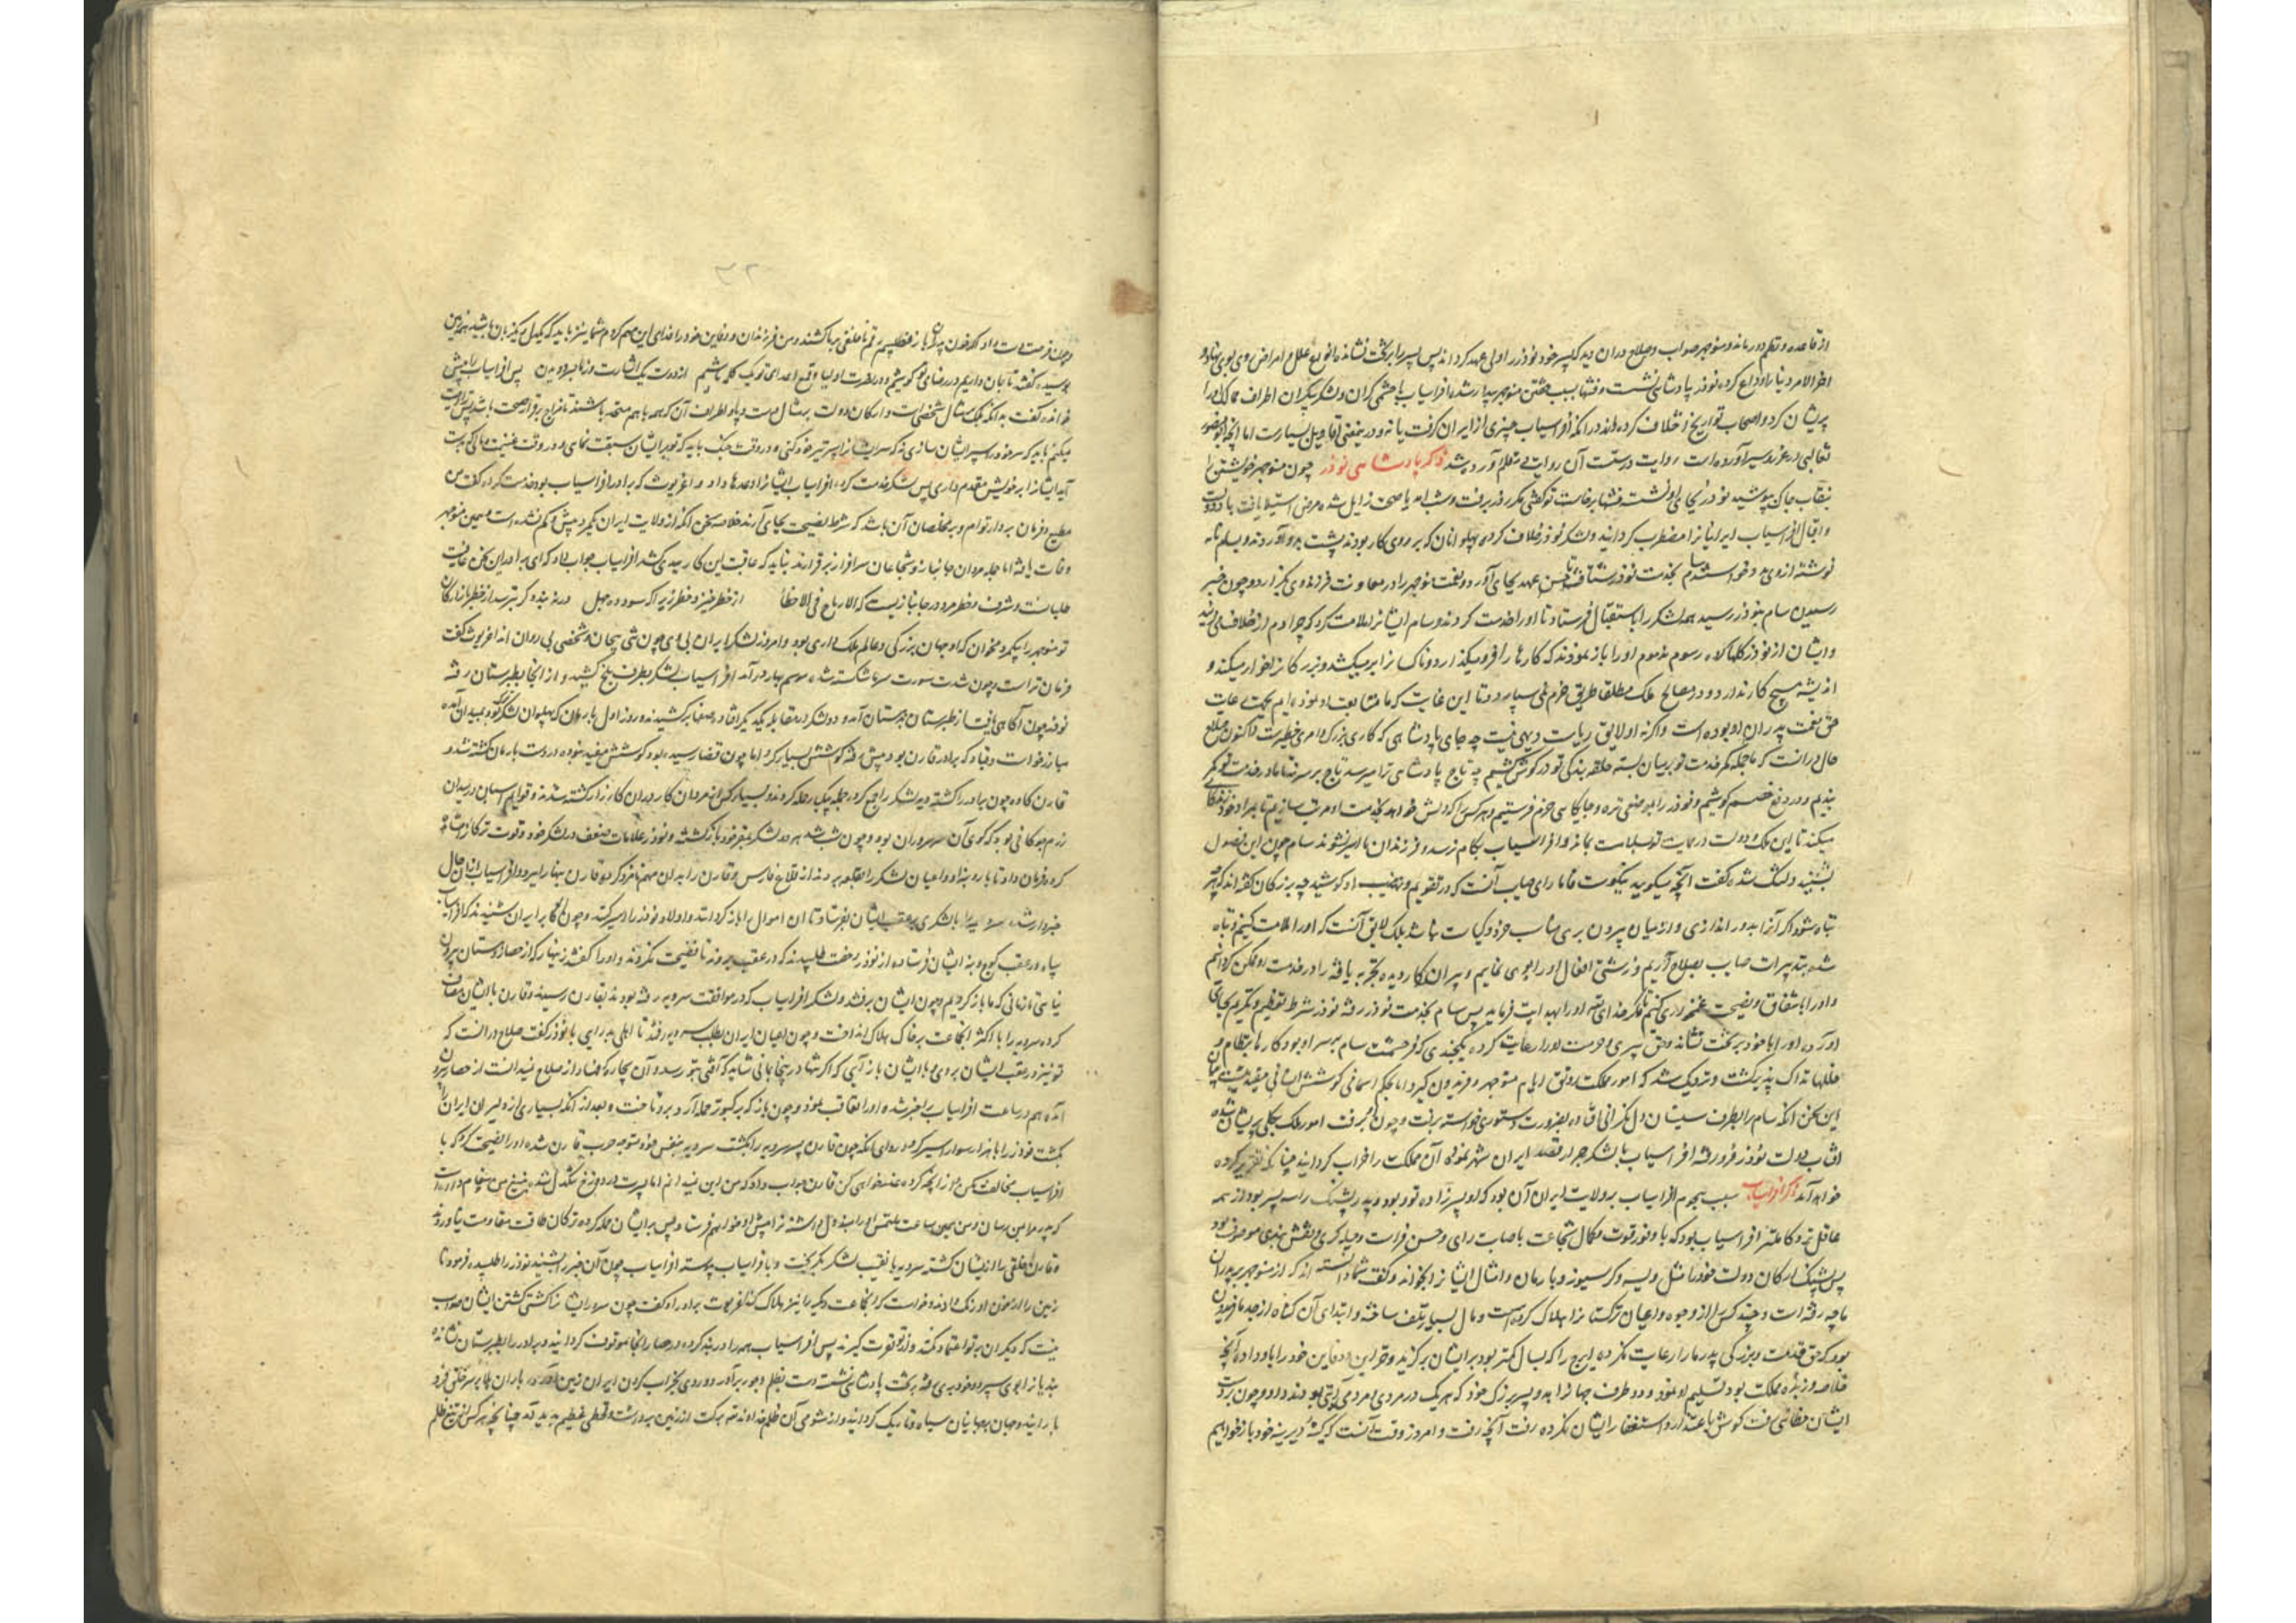 از قاعده و نظم دور ماند و منوچهر صواب و صلاح دران دید که پسر خود نوذر را ولی عهد کرداند پس پسر را بر تخت نشاند و انواع علل و امراض روی بوی نهاد و
اخر الامر دنیا را وداع کرد و نوذر پادشاهی نشست و فتنها بسبب خفتن منوچهر بیدار شد و افراسیاب با حشمی گران و لشکر بیکران اطراف ممالک را
پریشان کرد و اصحاب تواریخ اختلاف کرده اند در انکه افراسیاب چیزی از ایران گرفت یا نه و در معنی اقاویل بسیارست اما آنچه ابو منصور
ثعالبی در غرر و سیر آورده است روایت درست آن روایت بقلم آورده شد ذکر پادشاهی نوذر چون منوچهر خویشتن را
بنقاب خاک بپوشید نوذر بجای او نشست فتنها برخاست توکفتی مکر روز برفت و شب آمد یا صحت زایل شده مرض استیلا یافت
و اقبال افراسیاب ایرانیان را مضطرب کردانید و لشکر نوذر خلاف کرده پهلوانان که بر روی کار بودند پشت بدو آوردند و بسام نامه
نوشته از وی مدد خواستند سام بخدمت نوذر شتافت تا حسن عهد بجای آورد و نعمت منوچهر را در معاونت فرزند وی بگزارد و چون خبر
رسیدن سام بنوذر رسید همه لشکر را باستقبال فرستاد تا او را خدمت کردند و سام ایشانرا ملامت کرد که چرا دم از خلاف می زنید
و ایشان از نوذر کلها کرده رسوم مذموم او را باز نمودند که کارها را فرو میگذارد و ناکسانرا بر میکشد و بزرکانرا خوار میکند و
اندیشه هیچ کار ندارد و در مصالح ملک مطلقا طریق حزم نمی سپارد و تا این غایت که ما متابعت او نموده ایم بجهت رعایت
حق نعمت پدران او بوده است و اکر نه او لایق ریاست دیهی نیست چه جای پادشاهی که کاری بزرک و امری خطیرست اکنون صلاح
حال در انست که ما جمله کمر خدمت تو بر میان بسته حلقه بندکی تو در کوش کشیم چه تاج پادشاهی ترا میرسد تاج بر سر نه تا ما در خدمت تو کمر
بندیم و در دفع خصم کوشیم و نوذر را بموضعی نزه و جایکاهی خرم فرستیم و هر کس را که دلش خواهد بخدمت او مرتب سازیم تا بمراد خود زندکانی
میکند تا این ملک و دولت در حمایت تو بسلامت بماند و افراسیاب بکام نرسد و فرزندان ما اسیر نشوند سام چون این فصول
بشنید دلتنک شده کفت انچه میکویید نیکوست فاما رای صایب آنست که در تقویم و تهذیب او کوشید چه بزرکان کفته اند که کوهر
تباه شود اکر آنرا بدور اندازی و از میان بیرون بری مناسب خرد و کیاست نباشد بلک لایق آنست که او را ملامت کنیم و تباه
شده بتدبیرات صایب بصلاح آریم و زشتی افعال او را بوی نماییم و پیران کار دیده تجربه یافته را در خدمت او ممکن کردانیم
و او را باشفاق و نصیحت غمخواری کنیم تا مکر خدای تعالی او را هدایت فرماید پس سام بخدمت نوذر رفته نوذر شرط تعظیم و تکریم بجای
اورده او را با خود بر تخت نشاند و حق پیری و حرمت او را رعایت کرده یکچندی که فر حشمت سام بر سر او بود کارها بنظام و
خللها تدارک پذیر کشت و نزدیک شد که امور مملکت رونق ایام منوچهر و فریدون کیرد اما بحکم آسمانی کوشش انسانی مفید نیست
این سخن انکه سام را بطرف سیستان دل نکرانی افتاده بضرورت دستوری خواسته برفت و چون او برفت امور ملک بکلی پریشان شده
افتاب دولت نوذر فرو رفته افراسیاب با لشکر جرار قصد ایران شهر نموده آن مملکت را خراب کردانید چنانکه تقریر کرده
خواهد آمد ذکر افراسیاب سبب هجوم افراسیاب بولایت ایران آن بود که او پسرزاده تور بود و پدر پشنک را سه پسر بود از همه
عاقل تر و کاملتر افراسیاب بود که با وفور قوت و کمال شجاعت باصابت رای و حسن فراست و حیله کری و نقش بندی موصوف بود
پس پشنک ارکان دولت خود را مثل ویسه و کرسیوز و بارمان و امثال ایشانرا بخواند و کفت شما دانسته اید که از منوچهر بر پدران
ما چه رفته است و چند کس را از وجوه و اعیان ترکستان را هلاک کرده است و مال بسیار تلف ساخته و ابتدای آن کناه از جد ما فریدون
بود که حق قدمت و بزرکی پدر ما را رعایت نکرده ایرج را که بسال کمتر بود بر ایشان برکزید و خزاین و دفاین خود را باو داد و آنچه
خلاصه و زبده مملکت بود تسلیم او نمود و دو طرف جهانرا بدو پسر بزرک خود که هر یک در مردی و مردمی آیتی بودند داد و چون بر دست
ایشان خطائی رفت کوش باعتذار و استغفار ایشان نکرده رفت آنچه رفت و امروز وقت آنست که کینه دیرینه خود باز خواهیم
۳۲
و چون فرصت هست داد کرد خون پدران باز نطلبیم رقم ناخلفی بر ما کشند و من فرزندان و دفاین خود را فدای این مهم کردم شما نیز باید که یکدل و یکزبان باشید زمین
بوسیده کفتند تا جان داریم در رضای تو کوشیم و در نصرت اولیا و قمع اعدای تو یک کلمه باشیم از دوست یک اشارت و از ما بسر دویدن پس افراسیاب را پیش
خوانده کفت بدانکه ملک بمثال شخص است و ارکان دولت بر مثال دست و پا و اطراف آن که همه باهم متحد باشند تا مزاج بر قرار صحت باشد پس ترا وصیت
میکنم باید که سر خود را سپر ایشان سازی نه که سر ایشانرا سپر تیر خود کنی و در وقت جنک باید که تو بر ایشان سبقت نمای و در وقت غنیمت و مالی که بدست
آید ایشانرا بر خویش مقدم داری پس لشکر خدمت کرده افراسیاب ایشانرا وعدها داد و اغریرث که برادر افراسیاب بود خدمت کرده کفت من
مطیع و فرمان بردار توام و بر مخلصان آن باشد که شرط نصیحت بجای آرند خلاصه سخن انکه از ولایت ایران یکمرد بیش و کم نشده است و همین منوچهر
وفات یافته اما جمله مردان جانباز و شجاعان سرافراز بر قرارند نباید که عاقبت این کار بدی کشد افراسیاب جواب داد که ای برادر این سخن عافیت
طلبانست و شرف و خطر مرد در جانبازیست که الارباح فی الاخطار از خطر خیزد خطر زیرا که سود ده چهل در نه بندد کر بترسد از خطر بازارکان
تو منوچهر را یکمرد مخوان که او جهان بزرکی و عالم ملک داری بود و امروز لشکر ایران بی وی چون تنی بیجان و شخصی بی روان اند اغریرث کفت
فرمان تراست چون شدت سورت سرما شکسته شد و موسم بهار درآمد افراسیاب لشکر بطرف بلخ کشید و از انجا بطبرستان رفته
نوذر چون آکاهی یافت از طبرستان بدهستان آمد و دو لشکر در مقابله یکدیکر افتاد و صفها برکشیدند و روز اول بارمان که پهلوان لشکر تور بمیدان آمده
مبارز خواست و قباد که برادر قارن بود پیش رفته کوشش بسیار کرد اما چون قضا رسیده بود کوشش مفید نبوده در دست بارمان کشته شد و
قارن کاوه چون برادر را کشته دید لشکر را جمع کرده جمله بیکبار حمله کردند و بسیار کس از مردان کار در ان کارزار کشته شدند و قوایم اسبان در میدان
رزم چوکانی بود که کوی آن سر سروران بود و چون شب شد هر دو لشکر بمقر خود بازکشته و نوذر علامات ضعف در لشکر خود و قوت ترکان مشاهده
کرده فرمان داد تا بار و بنه او و اعیان لشکر را بقلعه برند از قلاع فارس و قارن را بدان مهم نامزد کرد و قارن بنها را ببرد و افراسیاب از ان حال
خبردار شده سرویه را با لشکری بر عقب ایشان بفرستاد تا ان اموال را باز کردانند و اولاد نوذر را دستکیر کنند و چون اکابر ایران شنیدند که افراسیاب
سپاه در عقب کوچ و بنه ایشان فرستاده از نوذر رخصت طلبیدند که در عقب بروند تا فضیحت نکردند و او را کفتند زینهار که از حصار دهستان بیرون
نیایی تا زمانی که ما بازکردیم و چون ایشان برفتند و لشکر افراسیاب که در موافقت سرویه رفته بودند بقارن رسیدند و قارن با ایشان مصاف
کرده سرویه را با اکثر انجماعت بر خاک هلاک انداخت و چون اعیان ایران بطلب سرویه رفتند تا اهلی بدرایی با نوذر کفت صلاح در انست که
تو نیز در عقب ایشان بروی و با ایشان باز آیی که اکر تنها در پنجا بمانی شاید که آفتی بتو رسد و آن بیچاره کمان از صلاح نیندانست از حصار بیرون
آمده هم در ساعت افراسیاب را خبر شده او را تعاقب نمود و چون باز که بر کبوتر حمله آرد بر و تاخت و بعد از انکه بسیاری از دلیران ایران را
بکشت نوذر را با هزار سوار اسیر کرده در روای انکه چون قارن پسر سرویه را بکشت سرویه بنفس خود متوجه حرب قارن شده او را نصیحت کرد که با
افراسیاب مخالفت مکن و از انچه کرده عذر خواهی کن قارن جواب داد که من این نمیدانم اما پسرت در دوزخ تنکدل شده بتیغ من پیغام داده است
که پدر ما من رسان و من همین ساعت ملتمس او را مبذول داشته ترا پیش او خواهم فرستاد پس بر ایشان حمله کرده ترکان طاقت مقاومت نیاوردند
و قارن خلقی را از ایشان کشته سرویه با نقیب لشکر بکریخت و با افراسیاب پیوسته افراسیاب چون آن خبر را بشنید نوذر را طلبیده فرمود تا
زمین را از خون او رنک دادند و خواست که انجماعت دیکر را نیز هلاک کند اغریرث برادر او کفت چون سر ایشانرا کشتی کشتن ایشان صواب
نیست که دیکران بر تو اعتماد نکنند و از تو نفرت کیرند پس افراسیاب همه را در بند کرده در حصار انجا موقوف کردانید و برادر را بطبرستان نشانده
بندیانرا بوی سپرده و خود بری رفته بر تخت پادشاهی نشست دست بظلم و جور برآورد و روی بخراب کردن ایران زمین آورد باران بلا بر سر خلق فرو
بارانید و جهان بر جهانیان سیاه و تاریک کردانید و از شومی آن ظلم خداوند تعالی برکت از زمین برداشت و قحطی عظیم پدید آمد چنانچه هر کس از تیغ ظلم